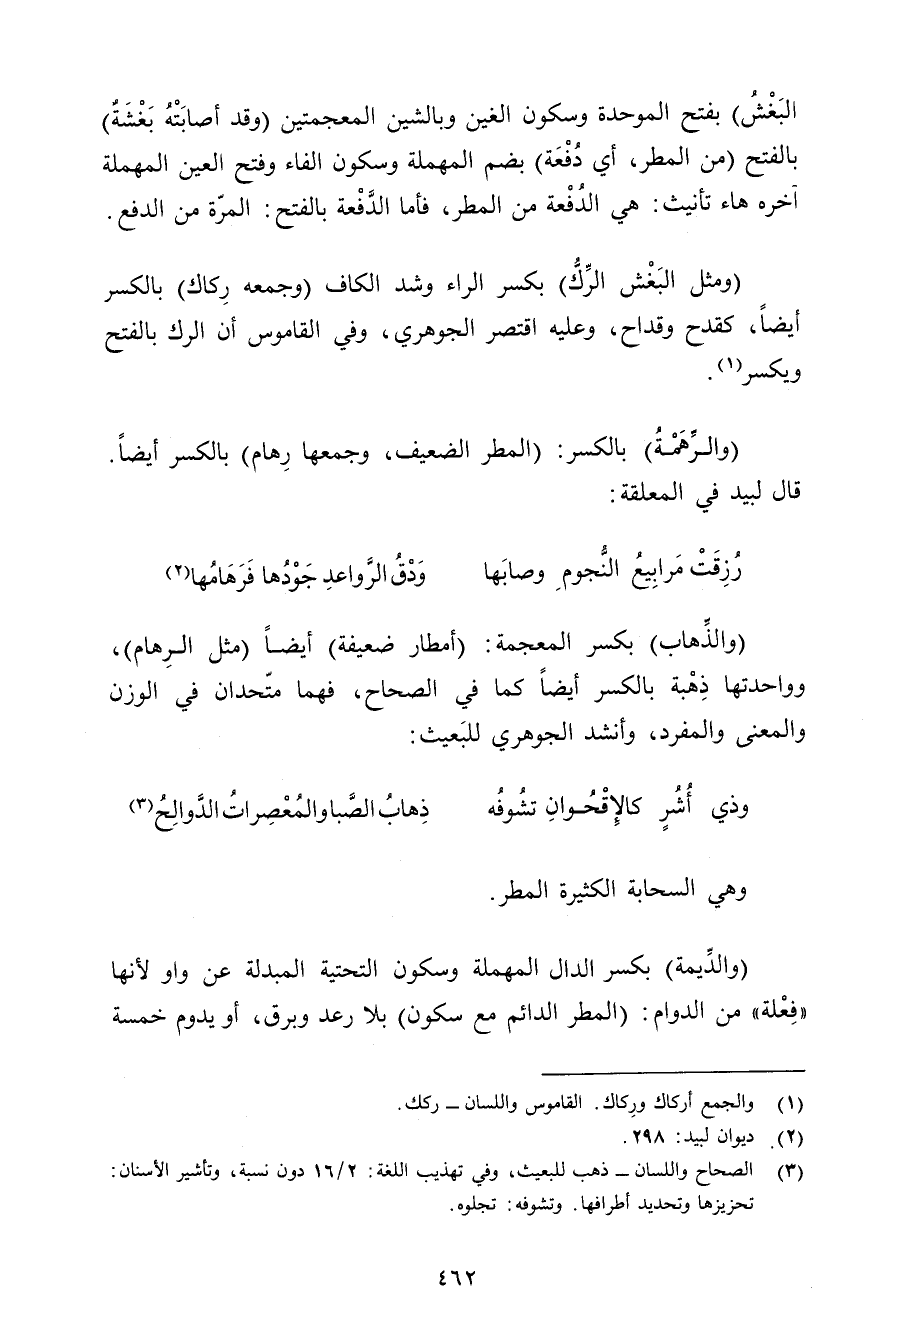 البَغْشُ) بفتح الموحدة وسكون الغين وبالشين المعجمتين (وقد أصابَتْهُ بَغْشَةٌ)
بالفتح (من المطر، أي دُفْعَة) بضم المهملة وسكون الفاء وفتح العين المهملة
آخره هاء تأنيث: هي الدُفْعة من المطر، فأما الدَّفْعة بالفتح: المرّة من الدفع.
(ومثل البَغْش الرِّكُّ) بكسر الراء وشد الكاف (وجمعه رِكاك) بالكسر
أيضاً، كقدح وقداح، وعليه اقتصر الجوهري، وفي القاموس أن الرك بالفتح
ويكسر(١).
(والرِّهْمَةُ) بالكسر: (المطر الضعيف، وجمعها رِهام) بالكسر أيضاً.
قال لبيد في المعلقة:
رُزِقَتْ مَرابِيعُ النُّجومِ وصابَها وَدْقُ الرَّواعدِ جَوْدُها فَرَهَامُها(٢)
(والذِّهاب) بكسر المعجمة: (أمطار ضعيفة) أيضاً (مثل الرِهام)،
وواحدتها ذِهْبة بالكسر أيضاً كما في الصحاح، فهما متّحدان في الوزن
والمعنى والمفرد، وأنشد الجوهري للبَعيث:
وذي أُشُرٍ كالإِقْحُوانِ تشُوفُه ذِهابُ الصَّبا والمُعْصِراتُ الدَّوالِحُ(٣)
وهي السحابة الكثيرة المطر.
(والدِّيمة) بكسر الدال المهملة وسكون التحتية المبدلة عن واو لأنها
«فِعْلة» من الدوام: (المطر الدائم مع سكون) بلا رعد وبرق، أو يدوم خمسة
(١) والجمع أركاك ورِكاك. القاموس واللسان ــ ركك.
(٢) ديوان لبيد: ٢٩٨.
(٣) الصحاح واللسان ــ ذهب للبعيث، وفي تهذيب اللغة: ١٦/٢ دون نسبة، وتأشير الأسنان:
تحزيزها وتحديد أطرافها. وتشوفه: تجلوه.
٤٦٢